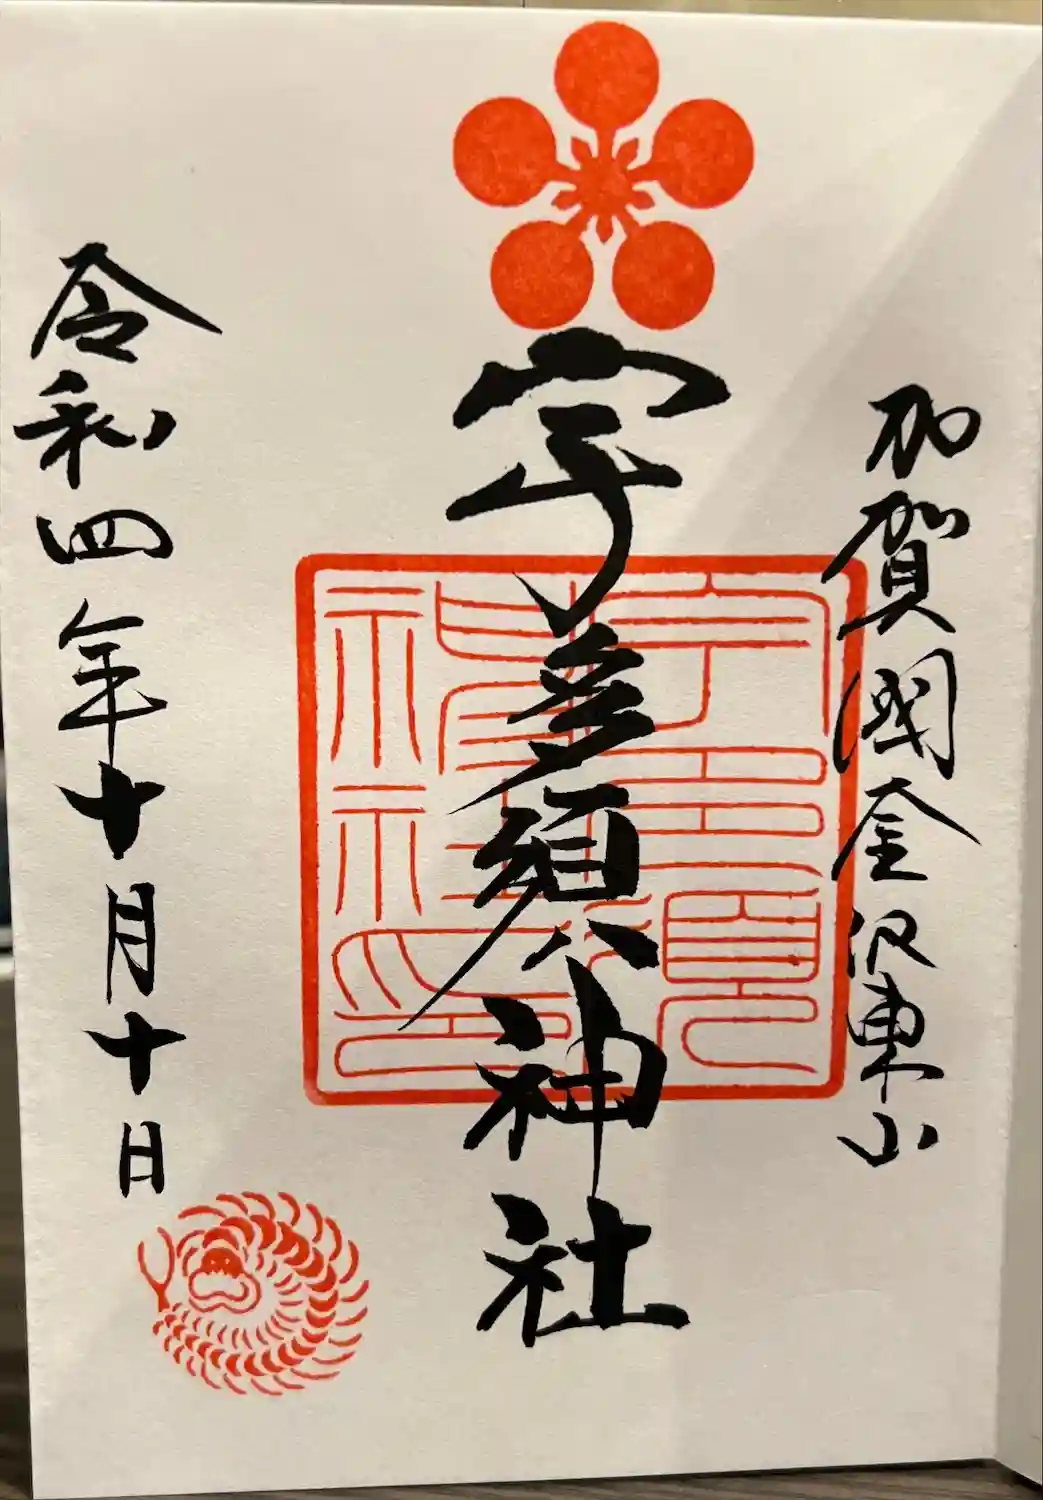 加賀國金沢東山
宇多須神社
宇多須神社印
令和四年十月十日